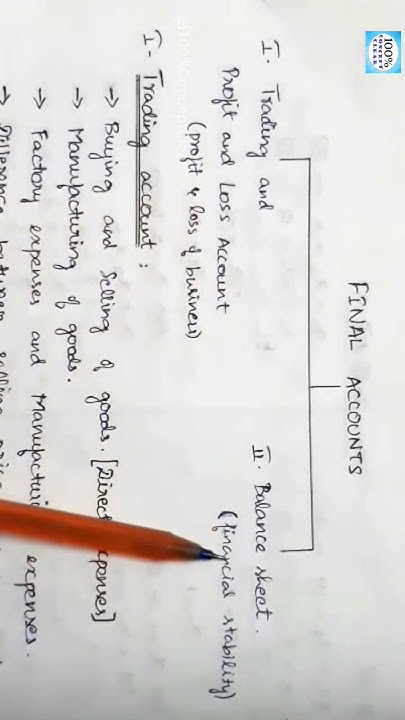 100%
CONCEPT
CLEAR
FINAL ACCOUNTS
I. Trading and
Profit and Loss Account
(profit & loss of business)
II. Balance sheet.
(financial stability)
I- Trading account :
→ Buying and Selling of goods. [Direct
→ Manufacturing of goods.
→ Factory expenses and expenses.
→ Difference between selling